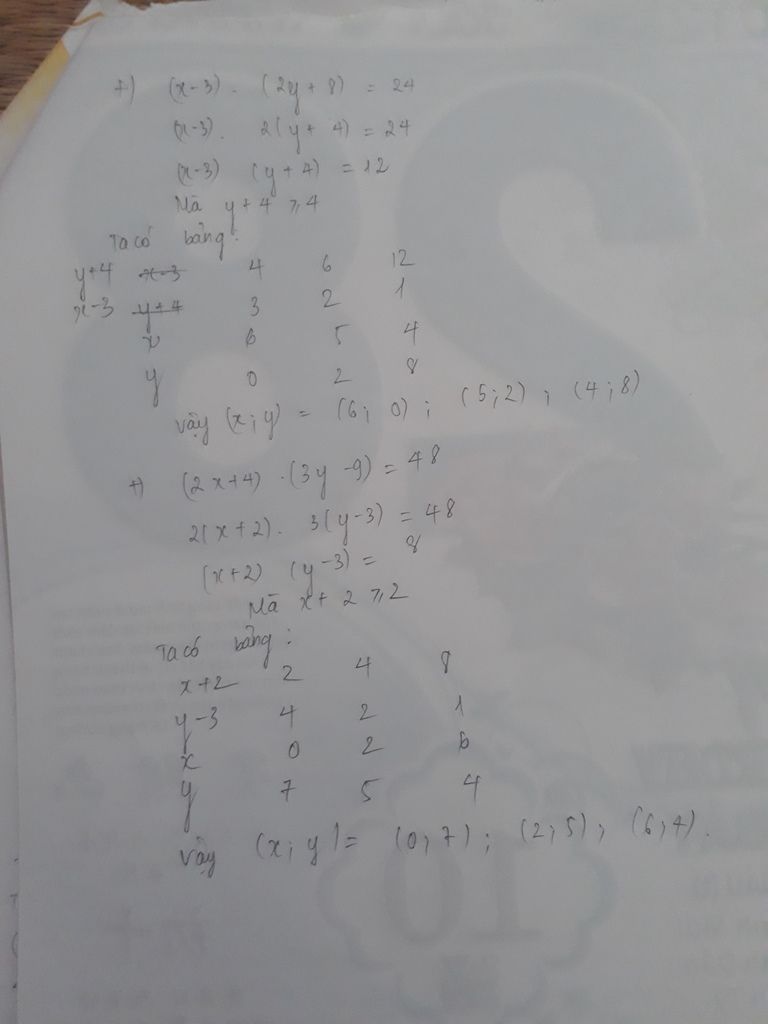 +) (x-3) . (2y+8) = 24
(x-3). 2(y+4) = 24
(x-3) (y+4) = 12
Mà y+4 ⩾ 4
Ta có bảng:
y+4 x-3 4 6 12
x-3 y+4 3 2 1
x 6 5 4
y 0 2 8
vậy (x;y) = (6; 0); (5;2); (4;8)
+) (2x+4) .(3y-9) = 48
2(x+2). 3(y-3) = 48
(x+2) (y-3) = 8
Mà x+2 ⩾ 2
Ta có bảng:
x+2 2 4 8
y-3 4 2 1
x 0 2 6
y 7 5 4
vậy (x;y) = (0;7); (2;5); (6;4).
28
10